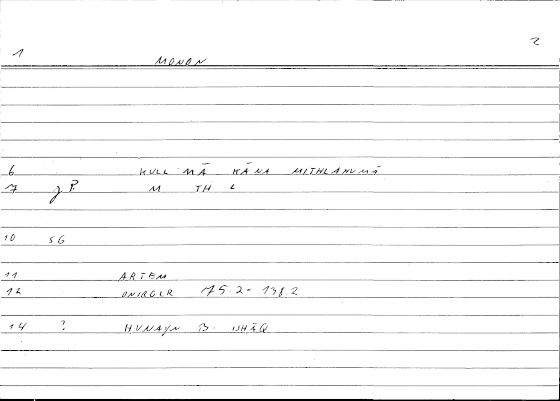 1 2
MONON
6 KULL MĀ KĀNA MITHLAHUMĀ
7 M TH L
10 SG
11 ARTEM
12 ONIROCR 175.2-1982
14 ? HUNAYN B. ISHĀQ